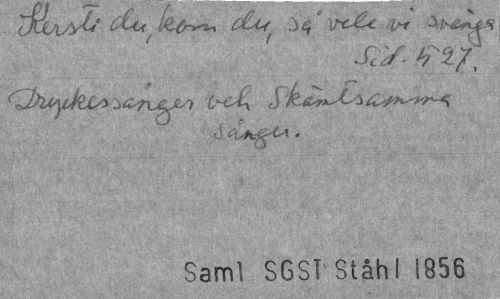 Kersti du, kom du, så vele vi svänga
Sid. 527.
Dryckessånger och Skämtsamma
sånger.
Saml SGST Ståhl 1856